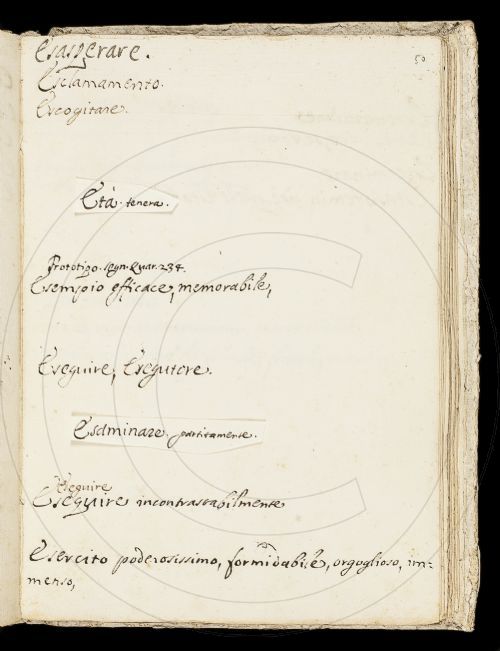 50
Esasperare.
Esclamamento.
Escogitare.
Età tenera.
Prototipo. Segn. Quar. 234.
Esempio efficace, memorabile,
Eseguire, Esegutore.
Esaminare partitamente.
Eseguire
Eseguire incontrastabilmente
Esercito poderosissimo, formidabile, orgoglioso, im=
menso,